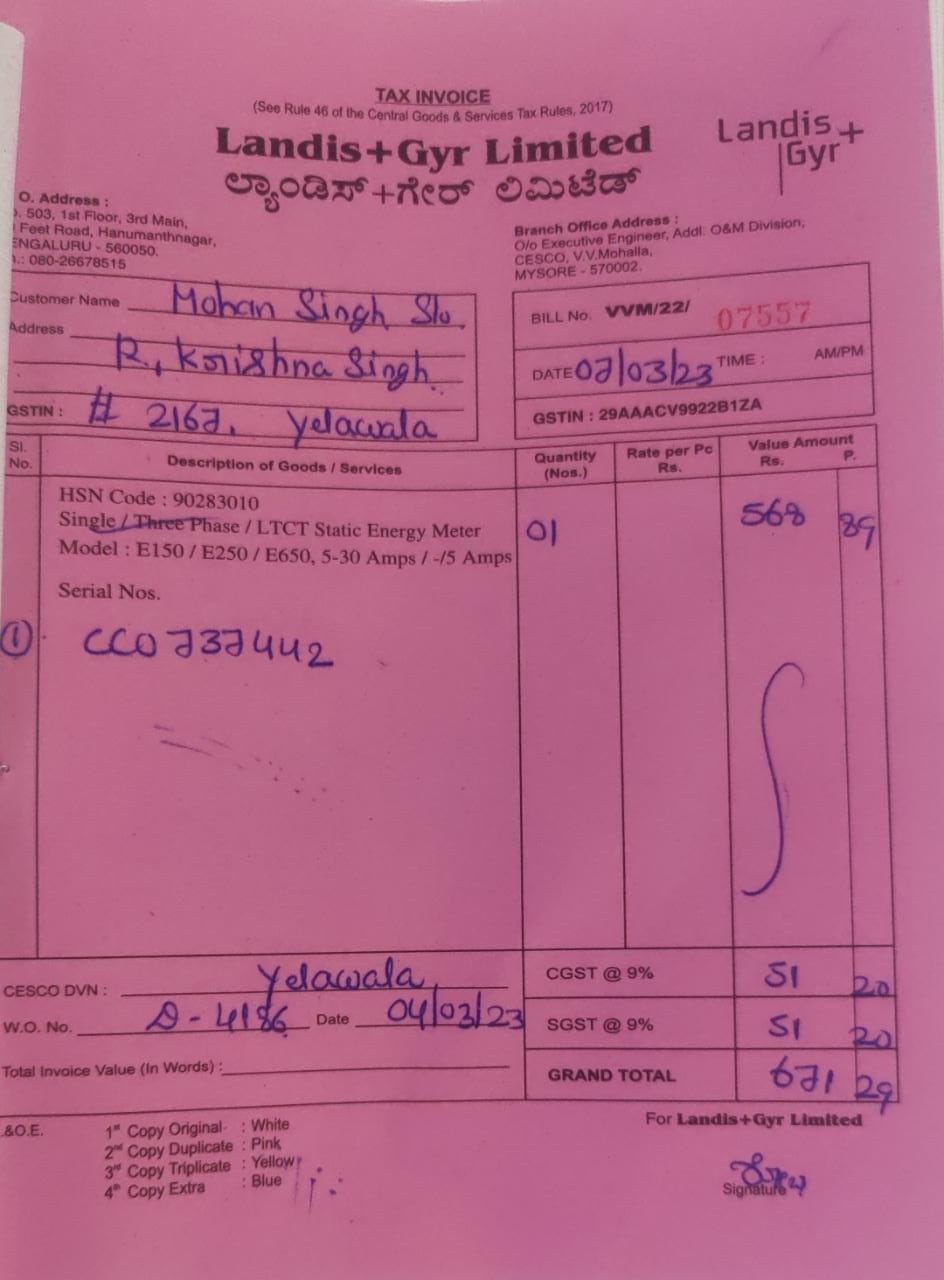 TAX INVOICE
(See Rule 46 of the Central Goods & Services Tax Rules, 2017)
Landis+Gyr Limited
ಲ್ಯಾಂಡಿಸ್+ಗೇರ್ ಲಿಮಿಟೆಡ್
Landis+
Gyr
O. Address :
503, 1st Floor, 3rd Main,
Feet Road, Hanumanthnagar,
ENGALURU - 560050.
.: 080-26678515
Branch Office Address :
O/o Executive Engineer, Addl. O&M Division,
CESCO, V.V.Mohalla,
MYSORE - 570002.
Customer Name Mohan Singh S/o.
Address R, Krishna Singh.
GSTIN : # 2167, Yelawala
BILL No. VVM/22/ 07557
DATE 07/03/23 TIME : AM/PM
GSTIN : 29AAACV9922B1ZA
Sl. No. Description of Goods / Services Quantity (Nos.) Rate per Pc Rs. Value Amount Rs. P.
HSN Code : 90283010
Single / Three Phase / LTCT Static Energy Meter 01 568 89
Model : E150 / E250 / E650, 5-30 Amps / -/5 Amps
Serial Nos.
1 CC0737442
CESCO DVN : Yelawala
W.O. No. D-4186 Date 04/03/23
Total Invoice Value (In Words) :
CGST @ 9% 51 20
SGST @ 9% 51 20
GRAND TOTAL 671 29
.&O.E.
1st Copy Original : White
2nd Copy Duplicate : Pink
3rd Copy Triplicate : Yellow
4th Copy Extra : Blue
For Landis+Gyr Limited
Signature